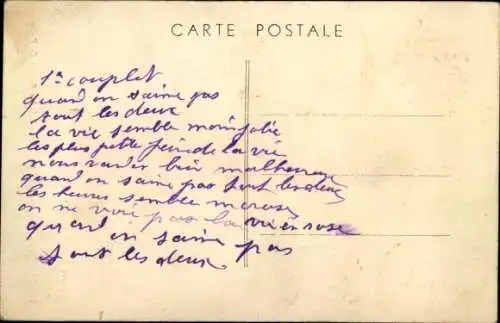 CARTE POSTALE
1er couplet
quand on saime pas
tout les deux
la vie semble moin jolie
les plus petite de la vie
nous malheureux
quand on saime pas tout les deux
les heures semble morose
on ne voie pas la vie en rose
quand on saime pas
tout les deux